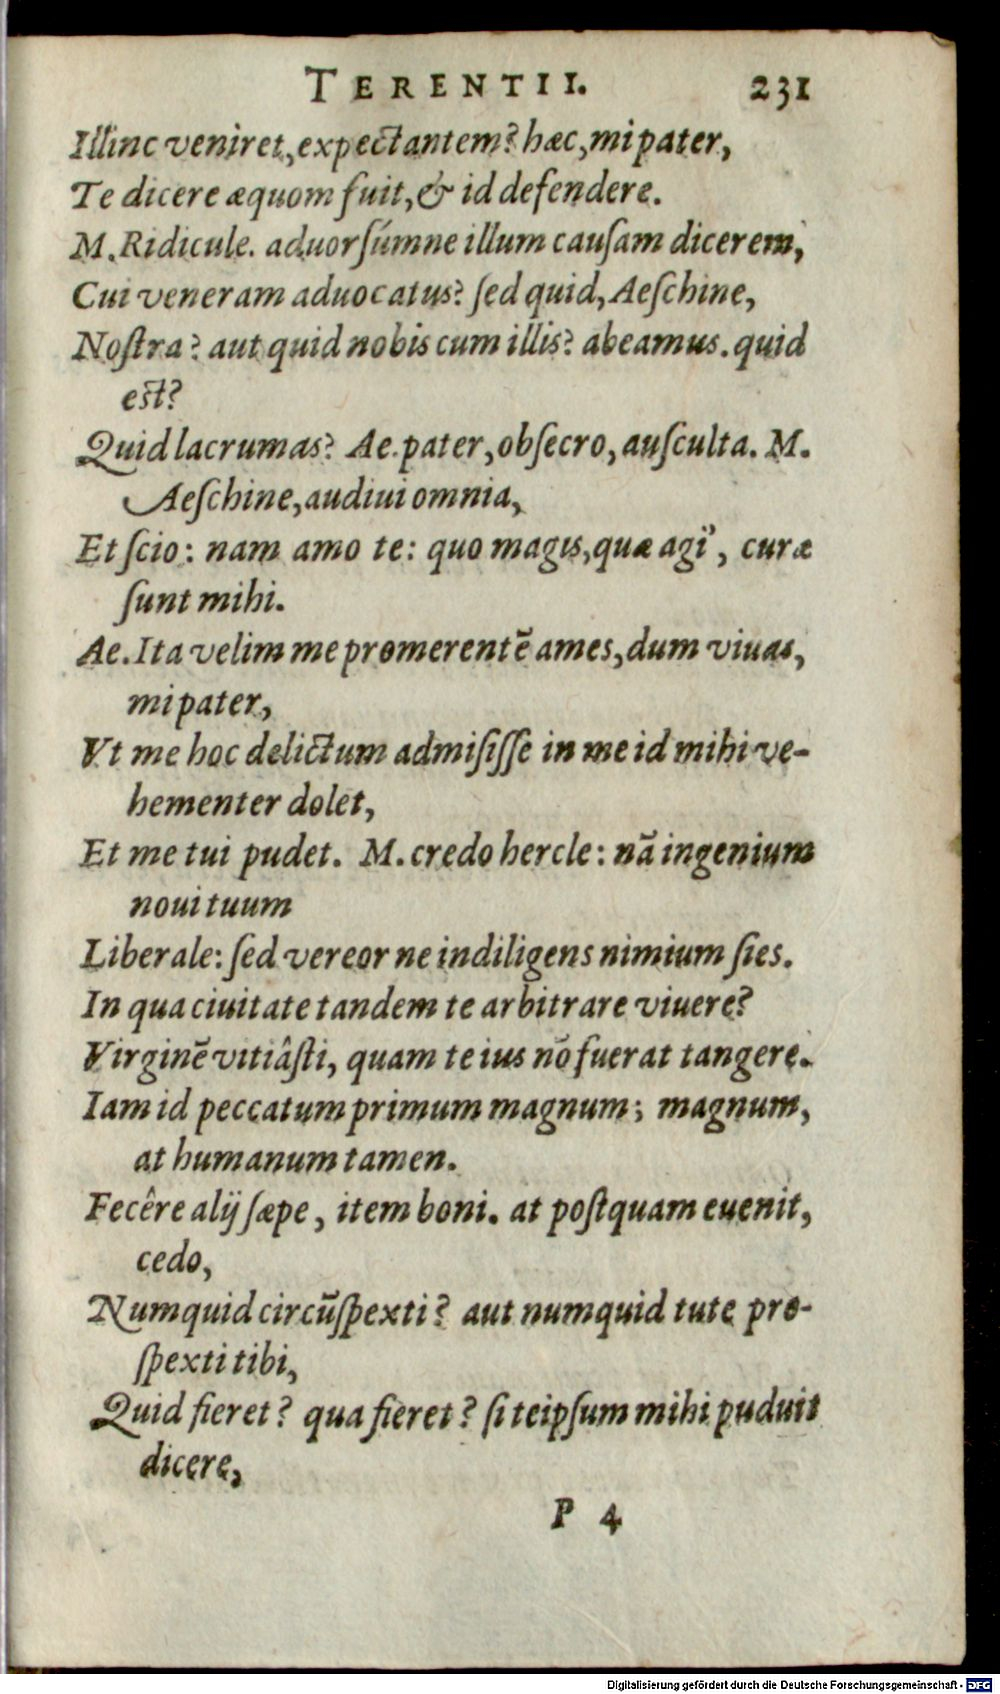 TERENTII. 231
Illinc veniret, expectantem? hæc, mi pater,
Te dicere æquom fuit, & id defendere.
M. Ridicule. aduorsúmne illum causam dicerem,
Cui veneram aduocatus? sed quid, Aeschine,
Nostra? aut quid nobis cum illis? abeamus. quid
est?
Quid lacrumas? Ae. pater, obsecro, ausculta. M.
Aeschine, audiui omnia,
Et scio: nam amo te: quo magis, quæ agi', curæ
sunt mihi.
Ae. Ita velim me promerentē ames, dum viuas,
mi pater,
Vt me hoc delictum admisisse in me id mihi ve-
hementer dolet,
Et me tui pudet. M. credo hercle: nā ingenium
noui tuum
Liberale: sed vereor ne indiligens nimium sies.
In qua ciuitate tandem te arbitrare viuere?
Virginē vitiâsti, quam te ius nō fuerat tangere.
Iam id peccatum primum magnum; magnum,
at humanum tamen.
Fecêre alij sæpe, item boni. at postquam euenit,
cedo,
Numquid circūspexti? aut numquid tute pro-
spexti tibi,
Quid fieret? qua fieret? si teipsum mihi puduit
dicere,
P 4
Digitalisierung gefördert durch die Deutsche Forschungsgemeinschaft - DFG